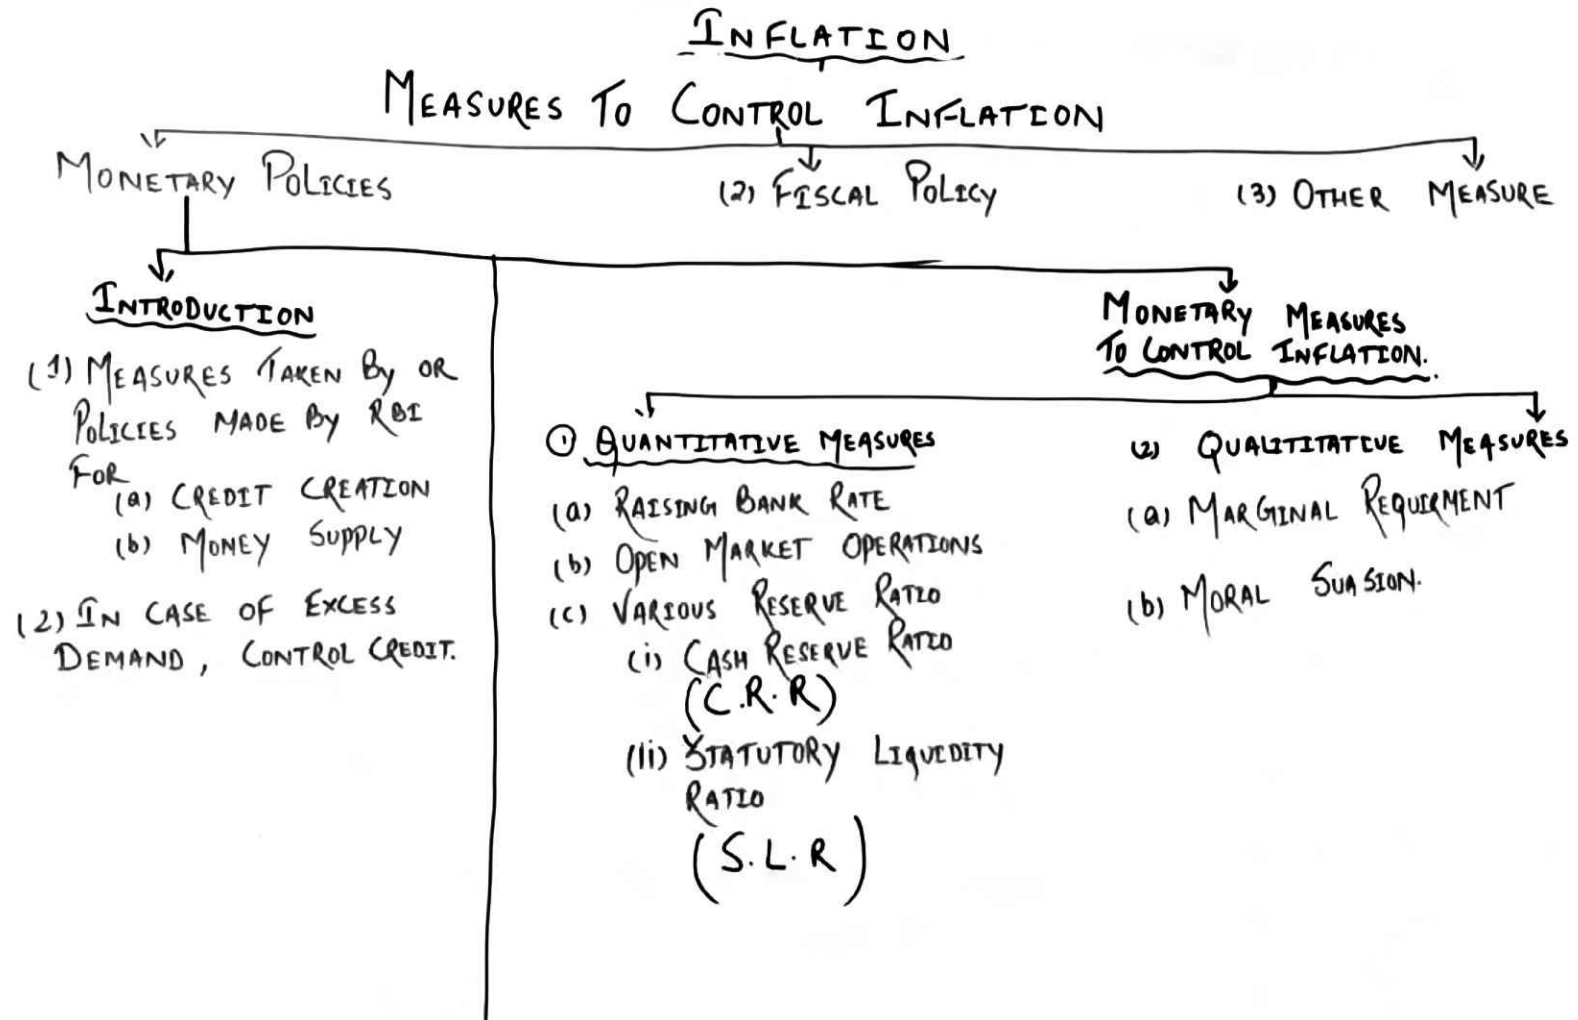 INFLATION
MEASURES TO CONTROL INFLATION
MONETARY POLICIES
(2) FISCAL POLICY
(3) OTHER MEASURE
INTRODUCTION
(1) MEASURES TAKEN By OR
POLICIES MADE By RBI
FOR
(a) CREDIT CREATION
(b) MONEY SUPPLY
(2) IN CASE OF EXCESS
DEMAND, CONTROL CREDIT.
MONETARY MEASURES
TO CONTROL INFLATION.
① QUANTITATIVE MEASURES
(a) RAISING BANK RATE
(b) OPEN MARKET OPERATIONS
(c) VARIOUS RESERVE RATIO
(i) CASH RESERVE RATIO
(C.R.R)
(ii) STATUTORY LIQUIDITY
RATIO
(S.L.R)
(2) QUALITITATIVE MEASURES
(a) MARGINAL REQUIRMENT
(b) MORAL SUASION.